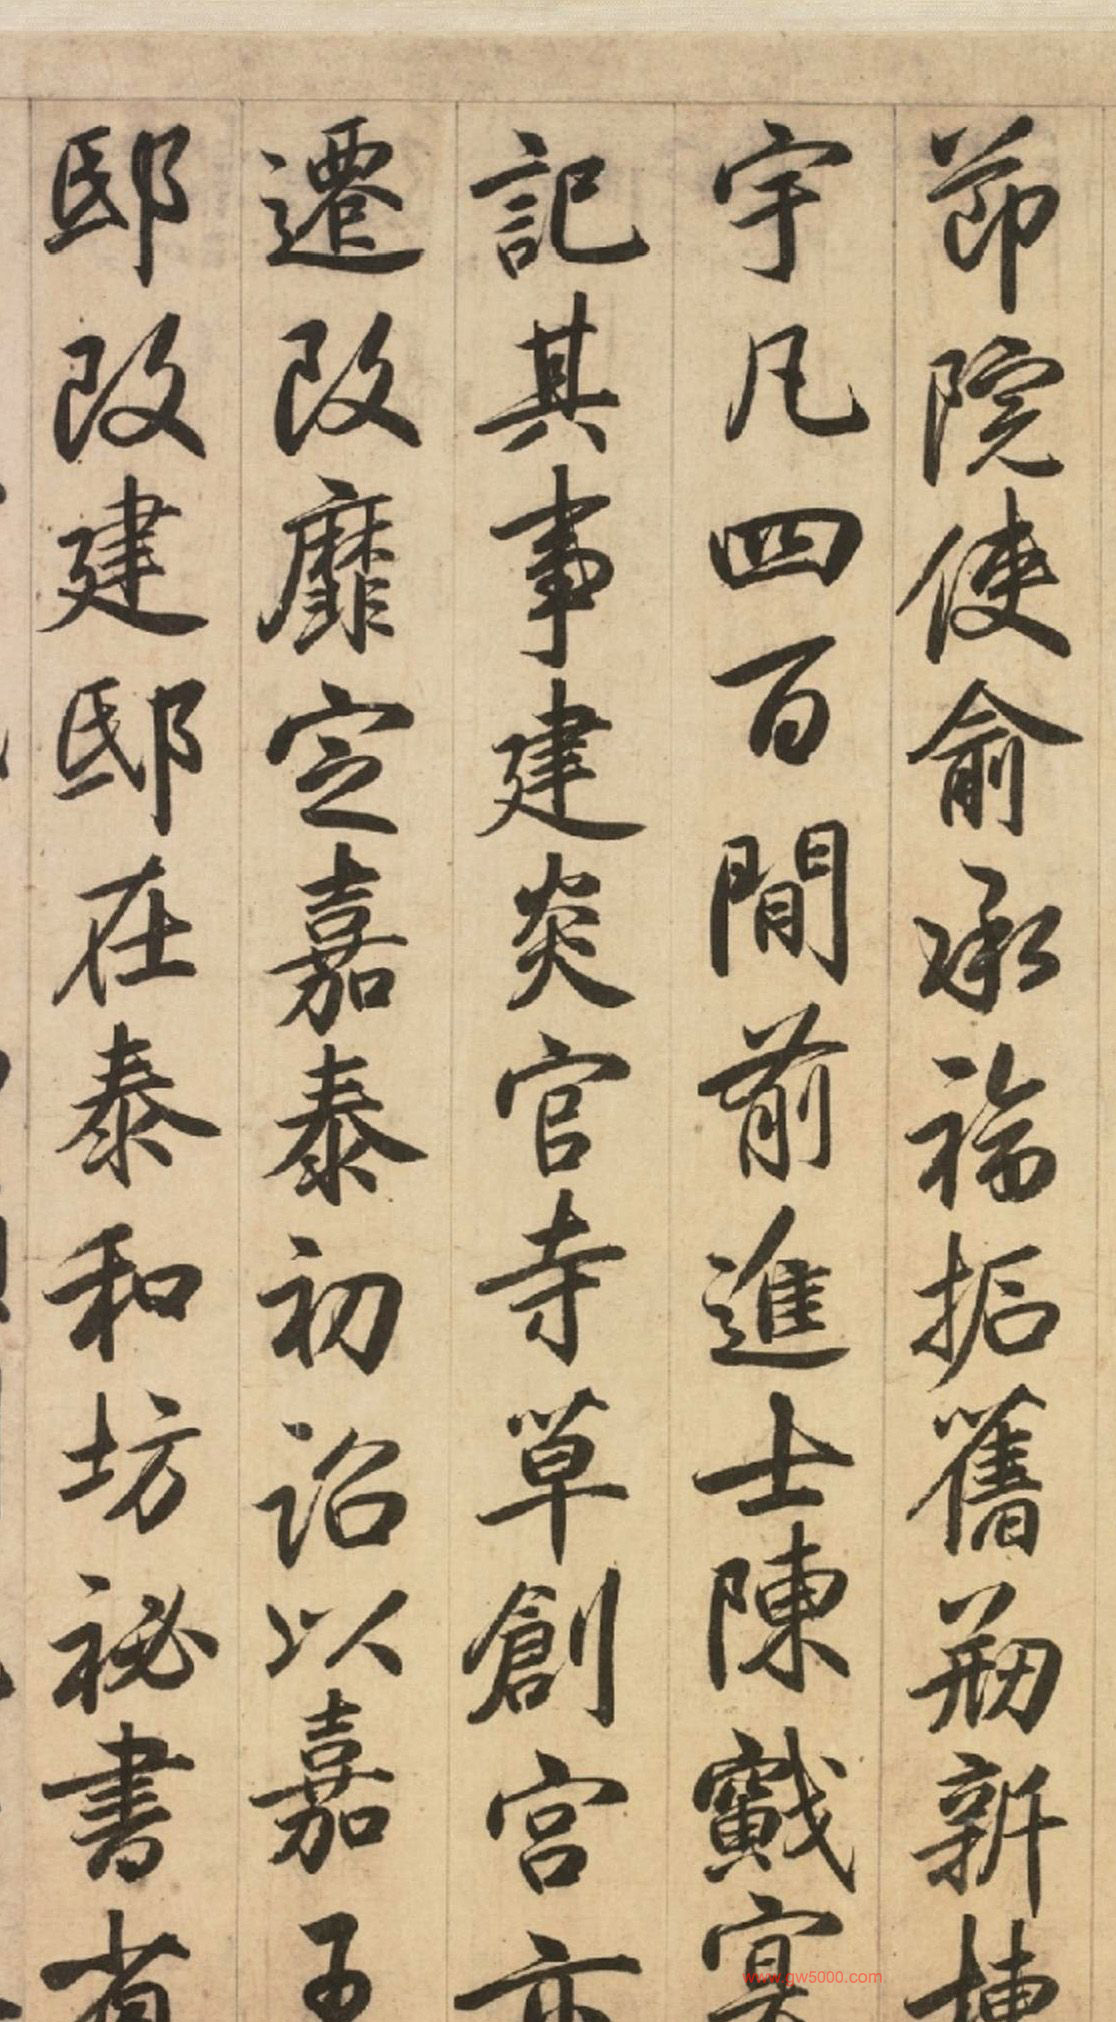 節院使俞承福拓舊刱新棟
宇凡四百間前進士陳戭寔
記其事建炎官寺草創宮亦
遷改靡定嘉泰初詔以嘉
邸改建邸在泰和坊祕書省
www.gw5000.com